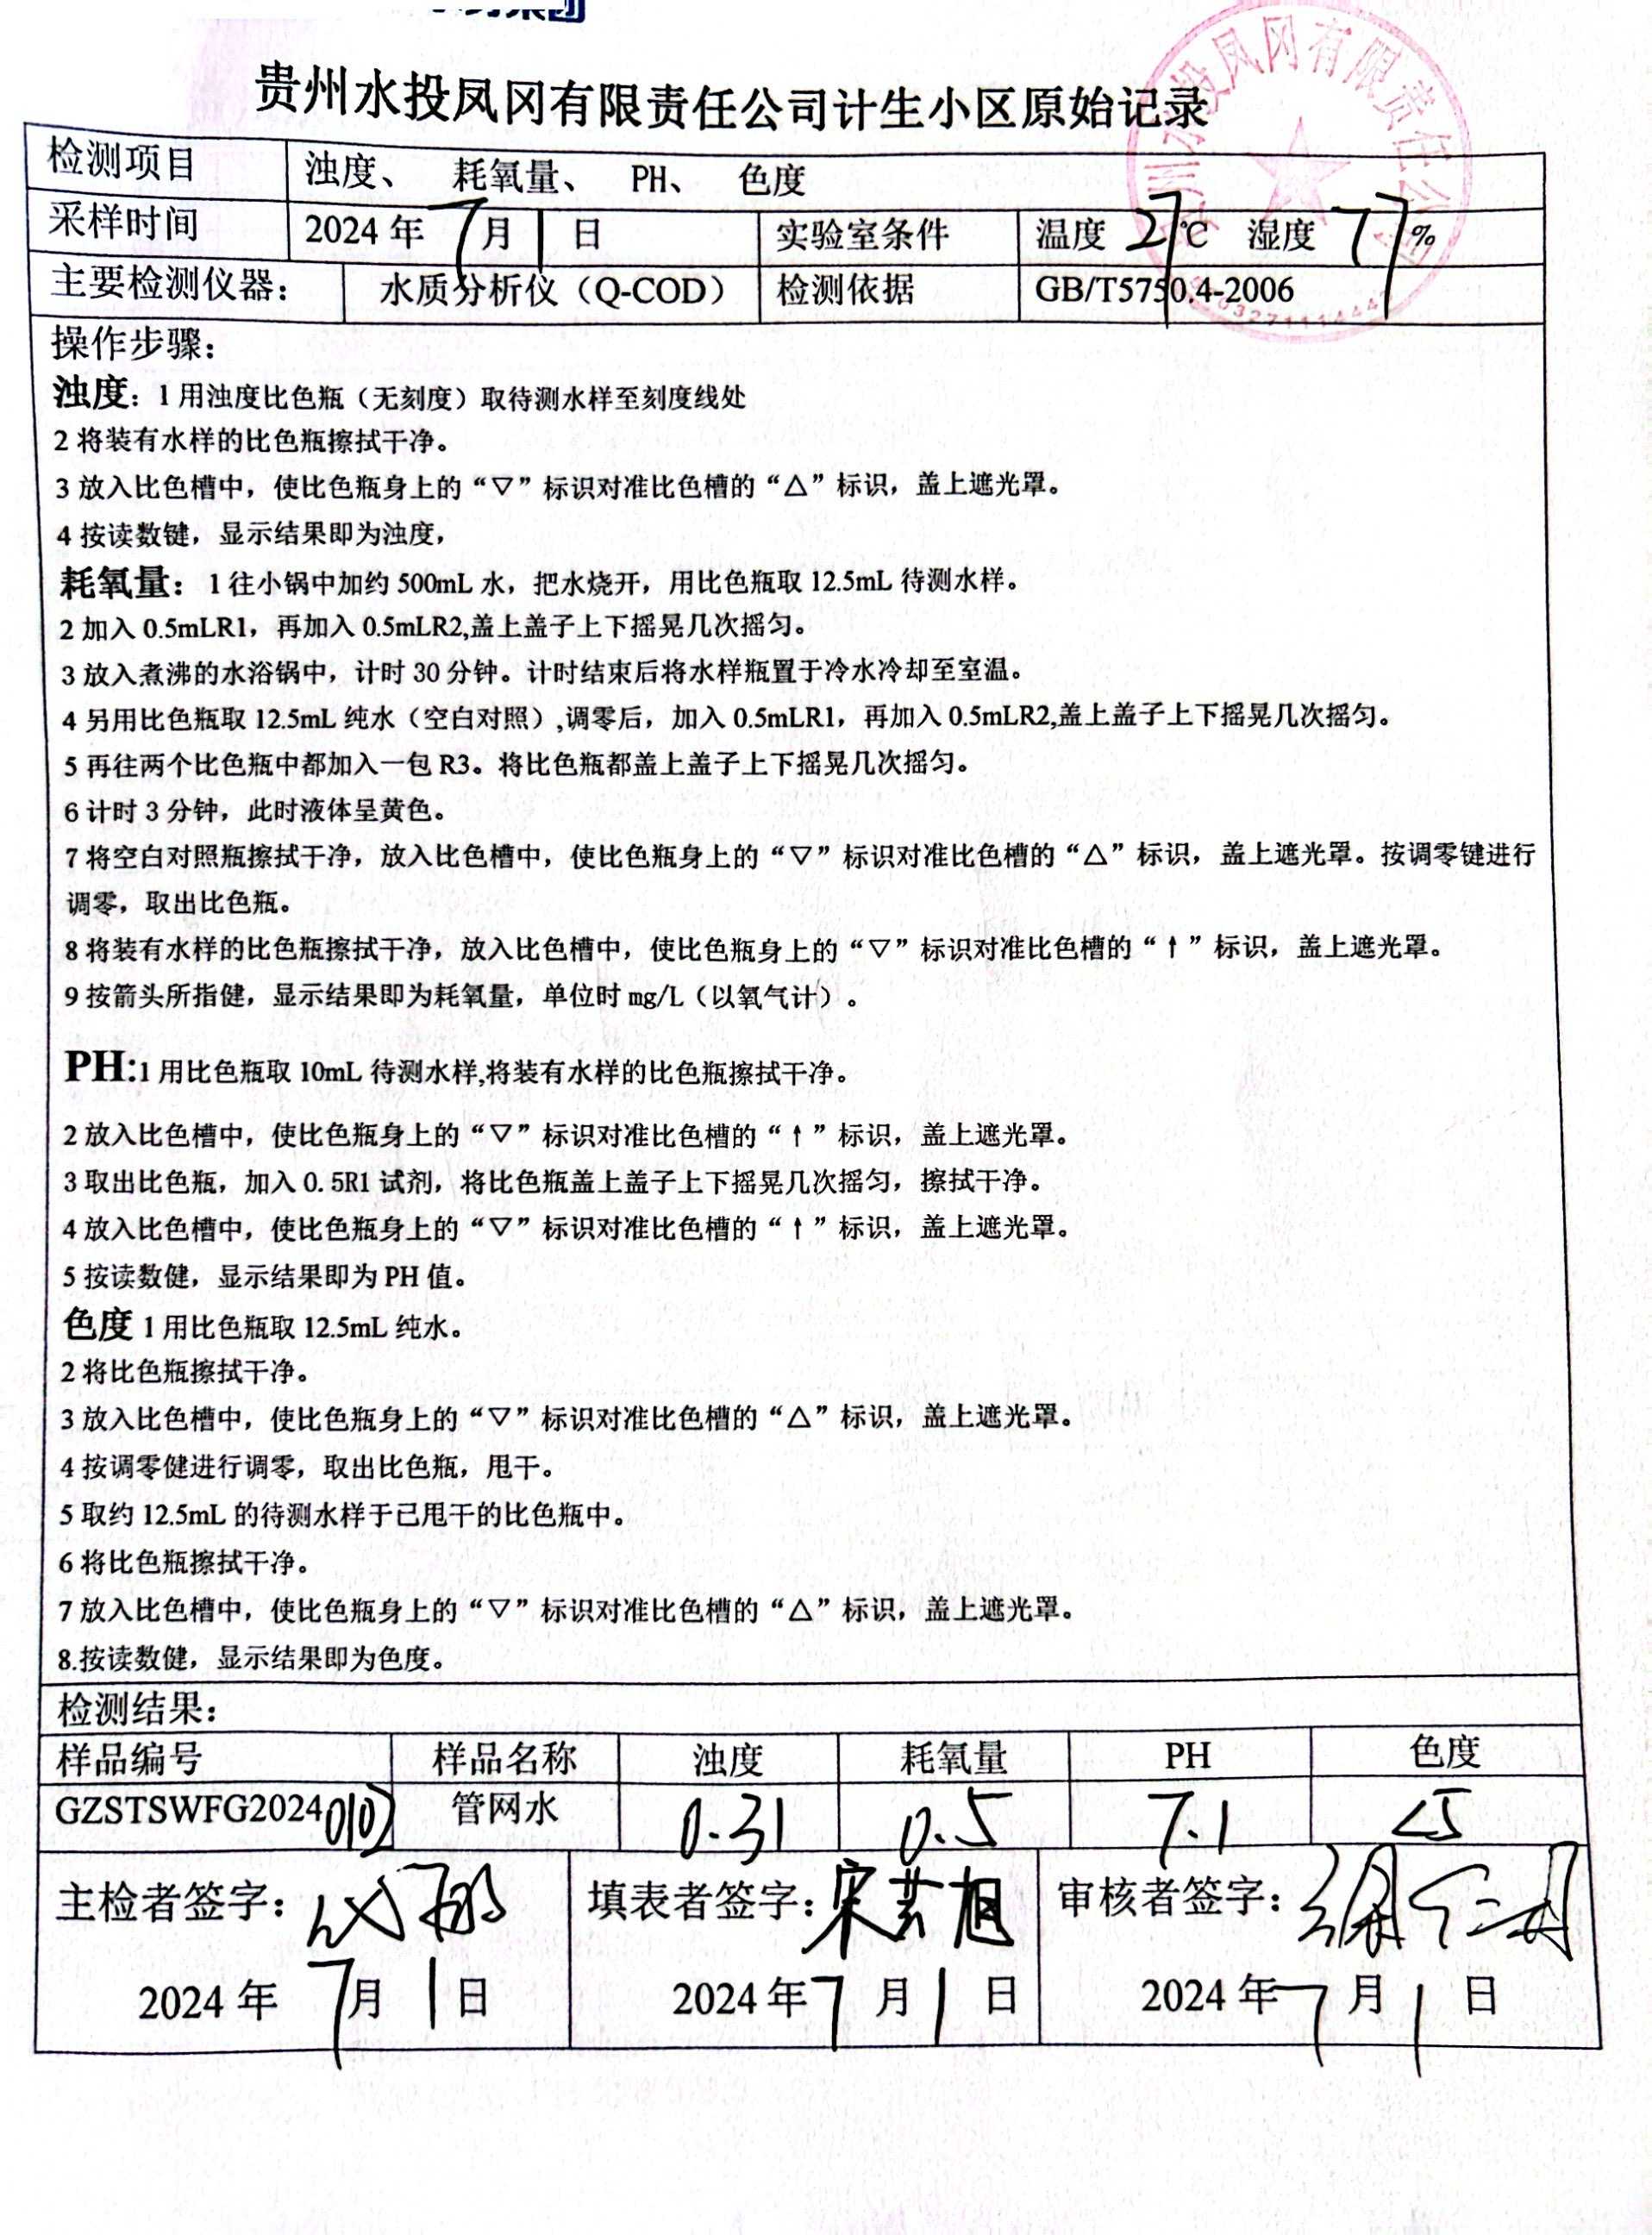 贵州水投凤冈有限责任公司计生小区原始记录
检测项目 浊度、 耗氧量、 PH、 色度
采样时间 2024年7月1日 实验室条件 温度27℃ 湿度77%
主要检测仪器： 水质分析仪（Q-COD） 检测依据 GB/T5750.4-2006
操作步骤：
浊度：1用浊度比色瓶（无刻度）取待测水样至刻度线处
2将装有水样的比色瓶擦拭干净。
3放入比色槽中，使比色瓶身上的“▽”标识对准比色槽的“△”标识，盖上遮光罩。
4按读数键，显示结果即为浊度，
耗氧量：1往小锅中加约500mL水，把水烧开，用比色瓶取12.5mL待测水样。
2加入0.5mLR1，再加入0.5mLR2,盖上盖子上下摇晃几次摇匀。
3放入煮沸的水浴锅中，计时30分钟。计时结束后将水样瓶置于冷水冷却至室温。
4另用比色瓶取12.5mL纯水（空白对照）,调零后，加入0.5mLR1，再加入0.5mLR2,盖上盖子上下摇晃几次摇匀。
5再往两个比色瓶中都加入一包R3。将比色瓶都盖上盖子上下摇晃几次摇匀。
6计时3分钟，此时液体呈黄色。
7将空白对照瓶擦拭干净，放入比色槽中，使比色瓶身上的“▽”标识对准比色槽的“△”标识，盖上遮光罩。按调零键进行
调零，取出比色瓶。
8将装有水样的比色瓶擦拭干净，放入比色槽中，使比色瓶身上的“▽”标识对准比色槽的“↑”标识，盖上遮光罩。
9按箭头所指健，显示结果即为耗氧量，单位时mg/L（以氧气计）。
PH:1用比色瓶取10mL待测水样,将装有水样的比色瓶擦拭干净。
2放入比色槽中，使比色瓶身上的“▽”标识对准比色槽的“↑”标识，盖上遮光罩。
3取出比色瓶，加入0.5R1试剂，将比色瓶盖上盖子上下摇晃几次摇匀，擦拭干净。
4放入比色槽中，使比色瓶身上的“▽”标识对准比色槽的“↑”标识，盖上遮光罩。
5按读数健，显示结果即为PH值。
色度1用比色瓶取12.5mL纯水。
2将比色瓶擦拭干净。
3放入比色槽中，使比色瓶身上的“▽”标识对准比色槽的“△”标识，盖上遮光罩。
4按调零健进行调零，取出比色瓶，甩干。
5取约12.5mL的待测水样于已甩干的比色瓶中。
6将比色瓶擦拭干净。
7放入比色槽中，使比色瓶身上的“▽”标识对准比色槽的“△”标识，盖上遮光罩。
8.按读数健，显示结果即为色度。
检测结果：
样品编号 样品名称 浊度 耗氧量 PH 色度
GZSTSWFG2024 管网水 0.31 0.5 7.1 <5
主检者签字： 填表者签字： 审核者签字：
2024年7月1日 2024年7月1日 2024年7月1日